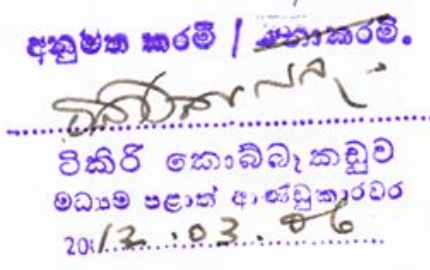 අනුමත කරමි / නොකරමි.
ටිකිරි කොබ්බෑකඩුව
මධ්‍යම පළාත් ආණ්ඩුකාරවර
2012.03.06